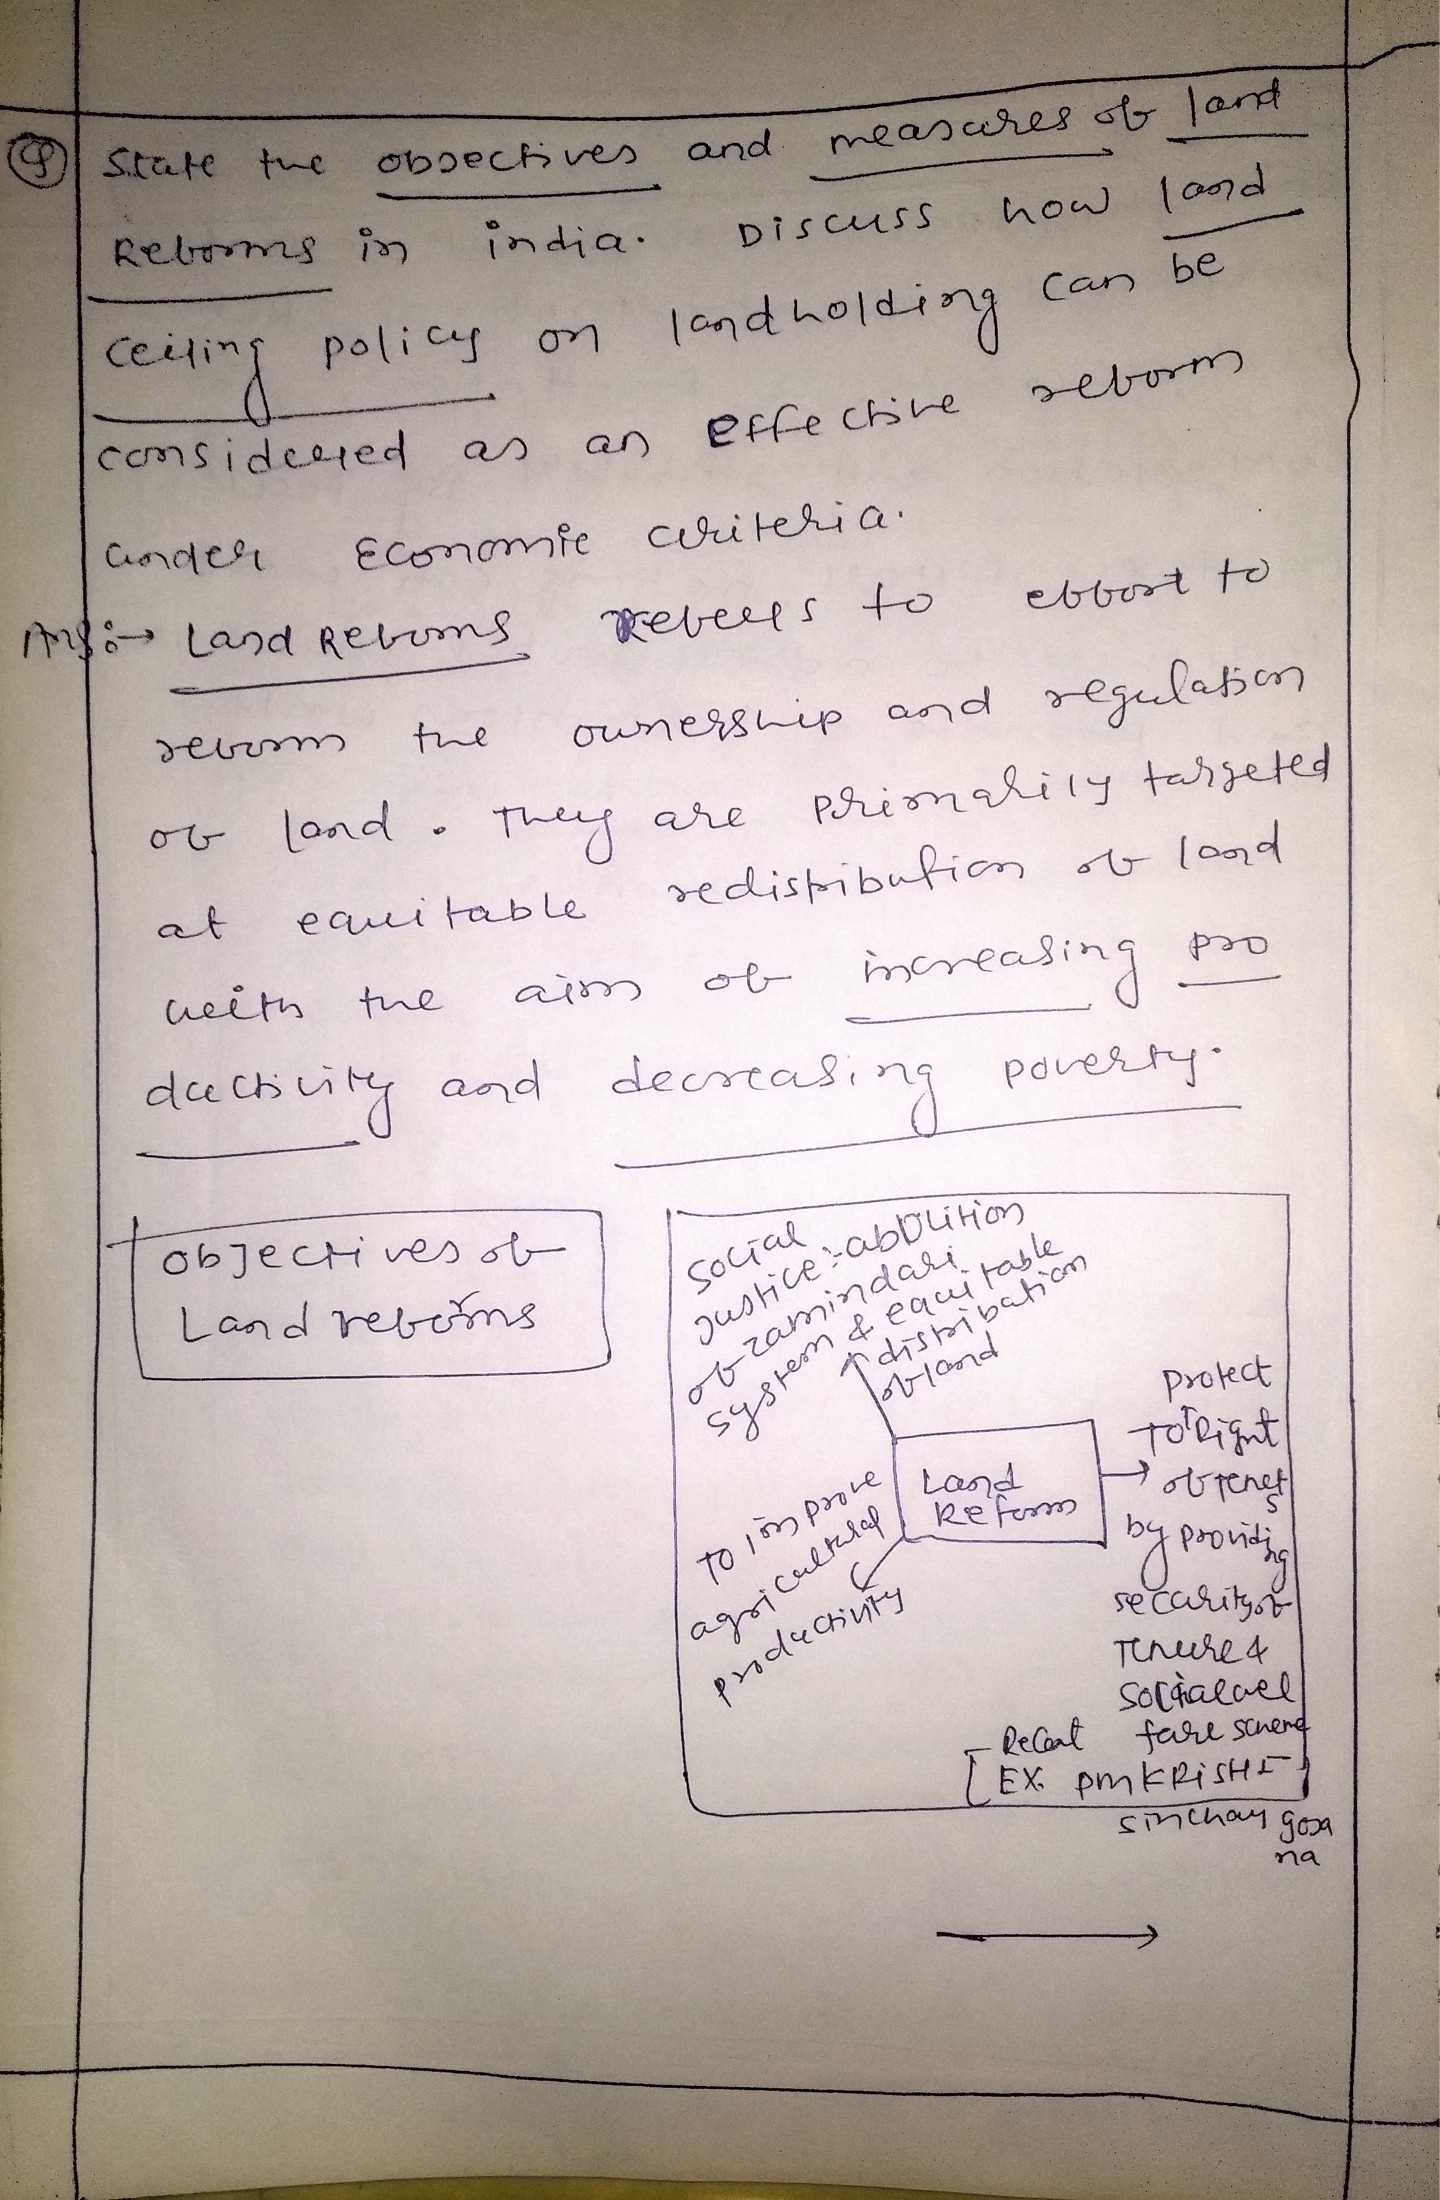 Q State the objectives and measures of land
Reforms in india. Discuss how land
ceiling policy on landholding can be
considered as an effective reform
under Economic criteria.
Ans:→ Land Reforms Refers to effort to
reform the ownership and regulation
of land. They are primarily targeted
at equitable redistribution of land
with the aim of increasing pro
ductivity and decreasing poverty.
Objectives of
Land reforms
Social
Justice:-abolition
of zamindari
system & equitable
distribution
of land
Land
Reform
To improve
agricultural
productivity
protect
To Right
of Tenet
s
by providi
ng
security of
Tenure &
Social wel
fare scheme
Recent
EX. PM KRISHI
sinchay yoja
na